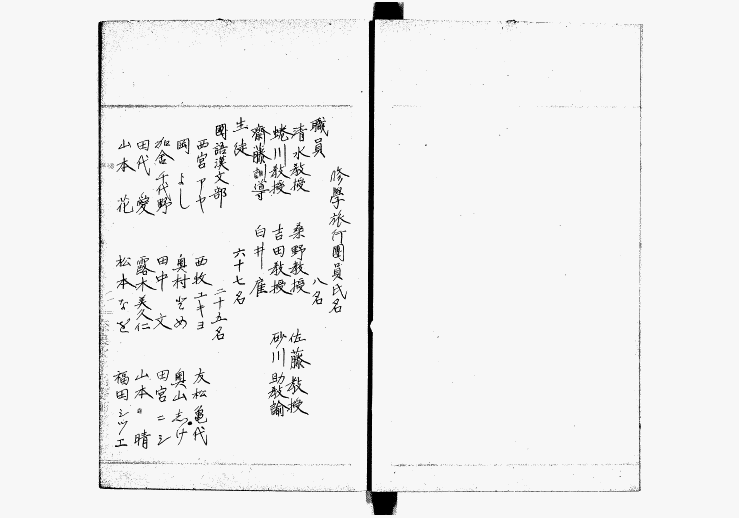 修學旅行團員氏名
職員 八名
清水教授 桑野教授 佐藤教授
蜷川教授 吉田教授 砂川助教諭
齋藤訓導 白井雇
生徒 六十七名
國語漢文部 二十五名
西宮アヤ 西牧ユキヨ 友松亀代
岡よし 奥村とめ 奥山志け
加舎千代野 田中文 田宮ニシ
田代愛 露木美久仁 山本晴
山本花 松本なを 福田シツエ